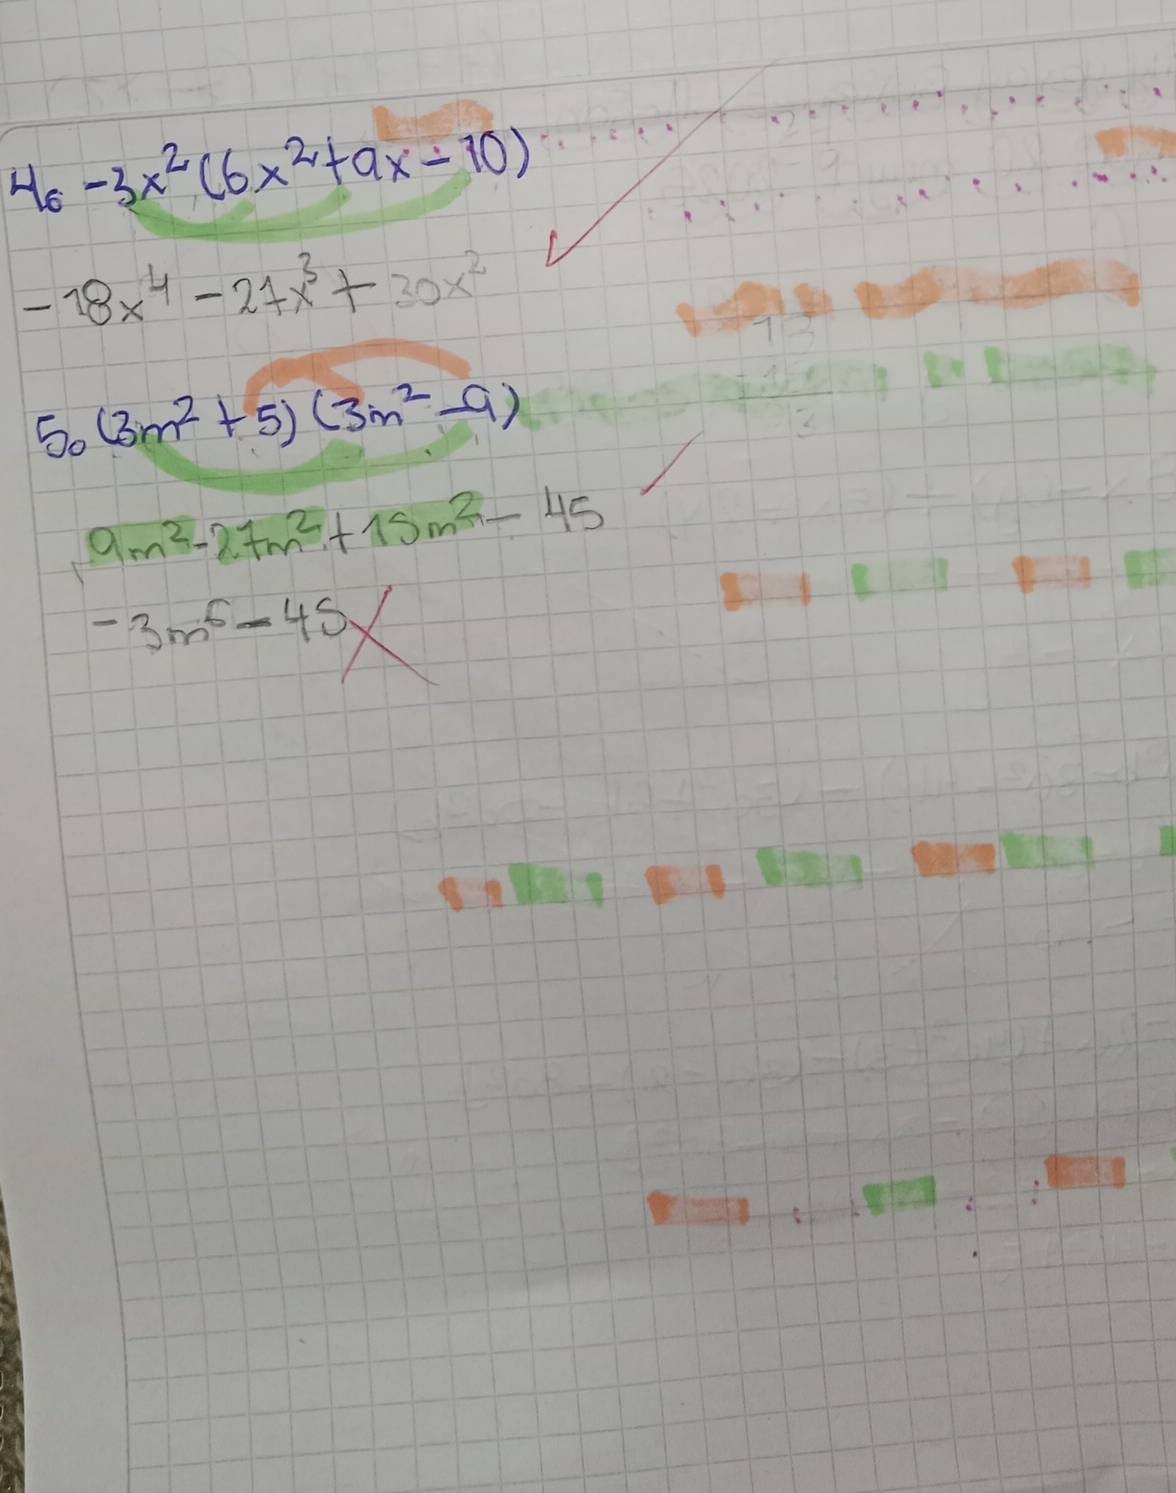 4. -3x²(6x²+9x-10)
-18x⁴ - 27x³ + 30x²
5. (3m²+5)(3m²-9)
9m²-27m²+15m²- 45
-3m⁶-45